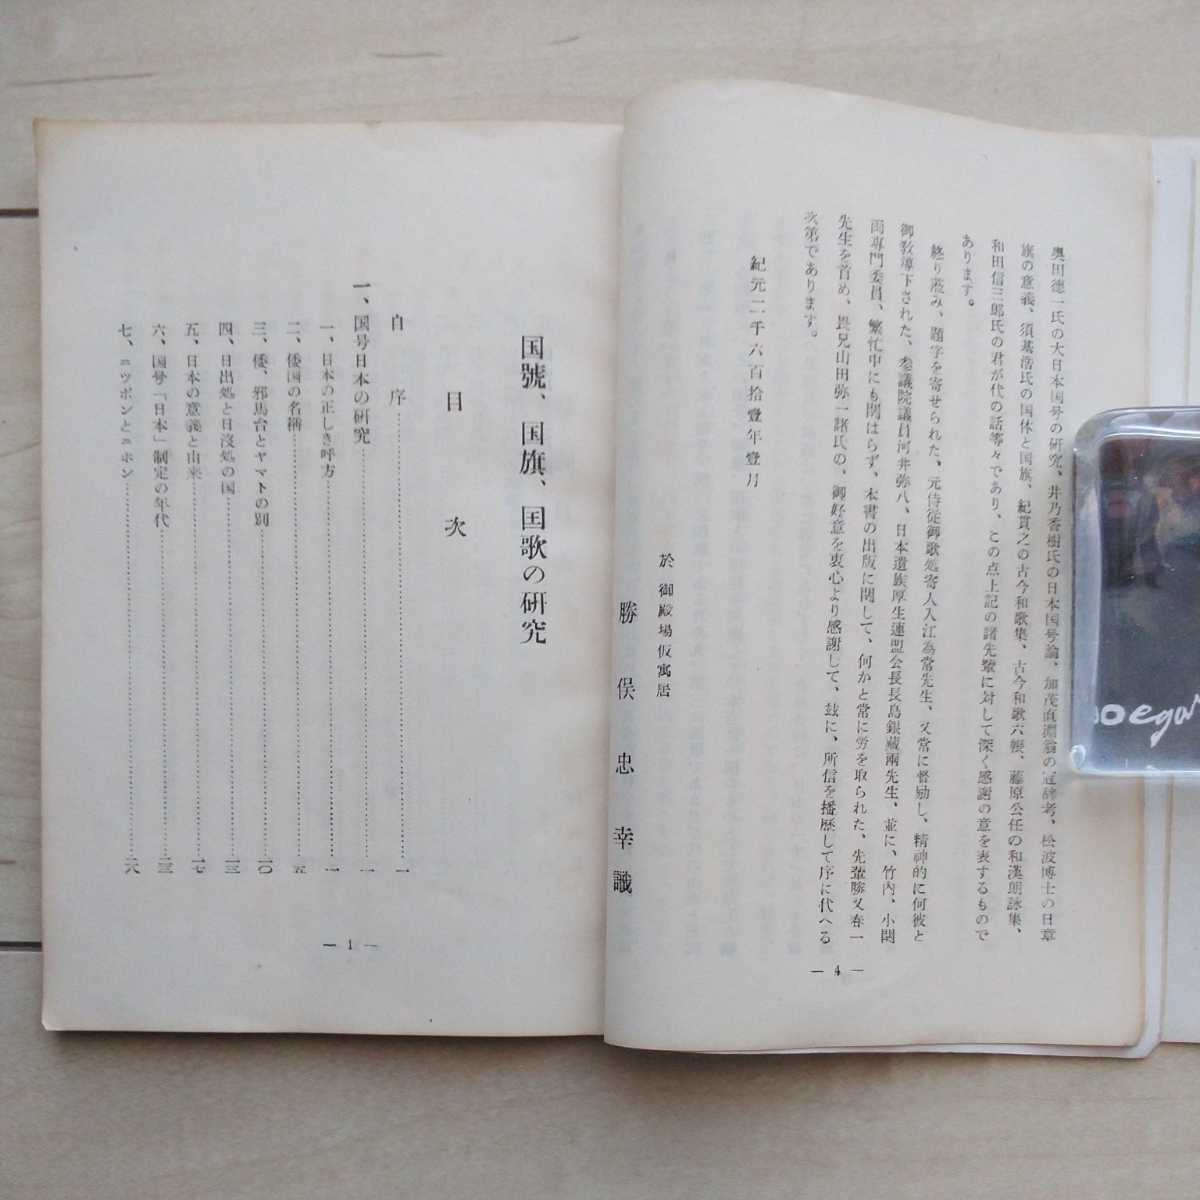 奥田德一氏の大日本国号の研究、井乃香樹氏の日本国号論、加茂直淵翁の冠辞考、松波博士の日章
旗の意義、須基浩氏の国体と国旗、紀貫之の古今和歌集、古今和歌六帳、藤原公任の和漢朗詠集、
和田信三郎氏の君が代の話等々であり、この点上記の諸先輩に対して深く感謝の意を表するもので
あります。
終り蒞み、題字を寄せられた、元侍従御歌処寄人入江為常先生、又常に督励し、精神的に何彼と
御教導下された、参議院議員河井弥八、日本遺族厚生連盟会長長島銀蔵両先生、並に、竹内、小関
両専門委員、繁忙中にも関はらず、本書の出版に関して、何かと常に労を取られた、先輩勝又春一
先生を首め、畏兄山田弥一諸氏の、御好意を衷心より感謝して、玆に、所信を播歴して序に代へる
次第であります。
紀元二千六百拾壹年壹月
於御殿場仮寓居
勝俣忠幸識
— 4 —
国號、国旗、国歌の研究
目次
自序……一
一、国号日本の研究……一
一、日本の正しき呼方……一
二、倭国の名称……五
三、倭、邪馬台とヤマトの別……一〇
四、日出処と日沒処の国……一三
五、日本の意義と由来……一七
六、国号「日本」制定の年代……二三
七、ニツポンとニホン……二八
— 1 —